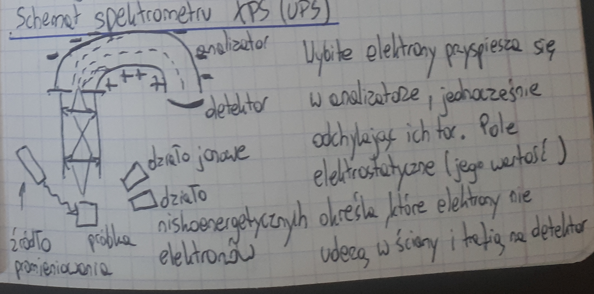 Schemat spektrometru XPS (UPS)
analizator
detektor
działo jonowe
działo
niskoenergetycznych
elektronów
źródło
promieniowania
próbka
Wybite elektrony przyspiesza się
w analizatorze, jednocześnie
odchylając ich tor. Pole
elektrostatyczne (jego wartość)
określa które elektrony nie
uderzą w ściany i trafią na detektor